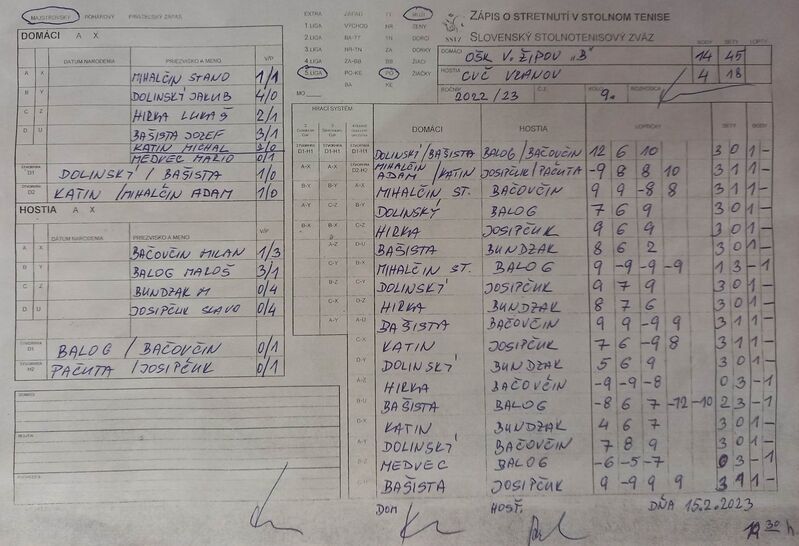 MAJSTROVSKÝ POHÁROVÝ PRIATEĽSKÝ ZÁPAS
DOMÁCI A X
DÁTUM NARODENIA PRIEZVISKO A MENO V/P
A X MIHALČIN STANO 1/1
B Y DOLINSKÝ JAKUB 4/0
C Z HIRKA LUKÁŠ 2/1
D U BAŠISTA JOZEF 3/1
KATIN MICHAL 2/0
MEDVEC MARIO 0/1
ŠTVORHRA D1 DOLINSKÝ / BAŠISTA 1/0
ŠTVORHRA D2 KATIN / MIHALČIN ADAM 1/0
HOSTIA A X
DÁTUM NARODENIA PRIEZVISKO A MENO V/P
A X BAČOVČIN MILAN 1/3
B Y BALOG MALOŠ 3/1
C Z BUNDZAK M 0/4
D U JOSIPČUK SLAVO 0/4
BALOG / BAČOVČIN 0/1
PAČUTA / JOSIPČUK 0/1
DOMÁCI
HOSTIA
EXTRA ZÁPAD MUŽI
1.LIGA VÝCHOD HR ŽENY
2.LIGA BA-TT TN DORCI
3.LIGA NR-TN ZA DORKY
4.LIGA ZA-BB BB ŽIACI
5.LIGA PO-KE PO ŽIAČKY
BA KE
MO
ZÁPIS O STRETNUTÍ V STOLNOM TENISE
SSTZ SLOVENSKÝ STOLNOTENISOVÝ ZVÄZ
BODY SETY LOPTY
DOMÁCI OŠK V. ŽIPOV „B" 14 45
HOSTIA CVČ VRANOV 4 18
ROČNÍK 2022/23 Č.Z. KOLO 9. ROZHODCA
HRACÍ SYSTÉM DOMÁCI HOSTIA LOPTIČKY SETY BODY
DOLINSKÝ/BAŠISTA BALOG/BAČOVČIN 12 6 10 3 0 1 -
MIHALČIN ADAM /KATIN JOSIPČUK/PAČUTA -9 8 8 10 3 1 1 -
MIHALČIN ST. BAČOVČIN 9 9 -8 8 3 1 1 -
DOLINSKÝ BALOG 7 6 9 3 0 1 -
HIRKA JOSIPČUK 9 6 9 3 0 1 -
BAŠISTA BUNDZAK 8 6 2 3 0 1 -
MIHALČIN ST. BALOG 9 -9 -9 -9 1 3 - 1
DOLINSKÝ JOSIPČUK 9 7 9 3 0 1 -
HIRKA BUNDZAK 8 7 6 3 0 1 -
BAŠISTA BAČOVČIN 9 9 -9 9 3 1 1 -
KATIN JOSIPČUK 7 6 -9 8 3 1 1 -
DOLINSKÝ BUNDZAK 5 6 9 3 0 1 -
HIRKA BAČOVČIN -9 -9 -8 0 3 - 1
BAŠISTA BALOG -8 6 7 -12 -10 2 3 - 1
KATIN BUNDZAK 4 6 7 3 0 1 -
DOLINSKÝ BAČOVČIN 7 8 9 3 0 1 -
MEDVEC BALOG -6 -5 -7 0 3 - 1
BAŠISTA JOSIPČUK 9 -9 9 9 3 1 1 -
DOM HOSŤ. DŇA 15.2.2023
30 h